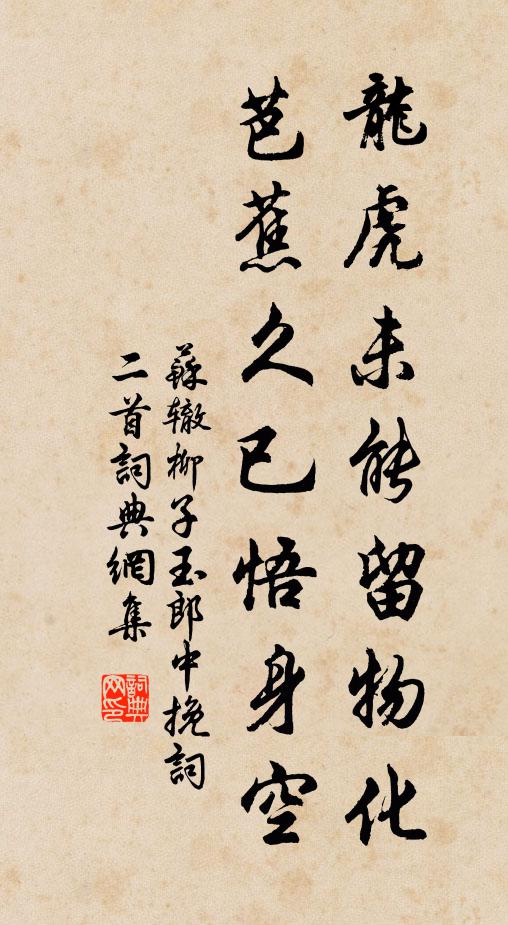 龍虎未能留物化
芭蕉久已悟身空
蘇轍柳子玉郎中挽詞
二首詞典網集
詞典
网印